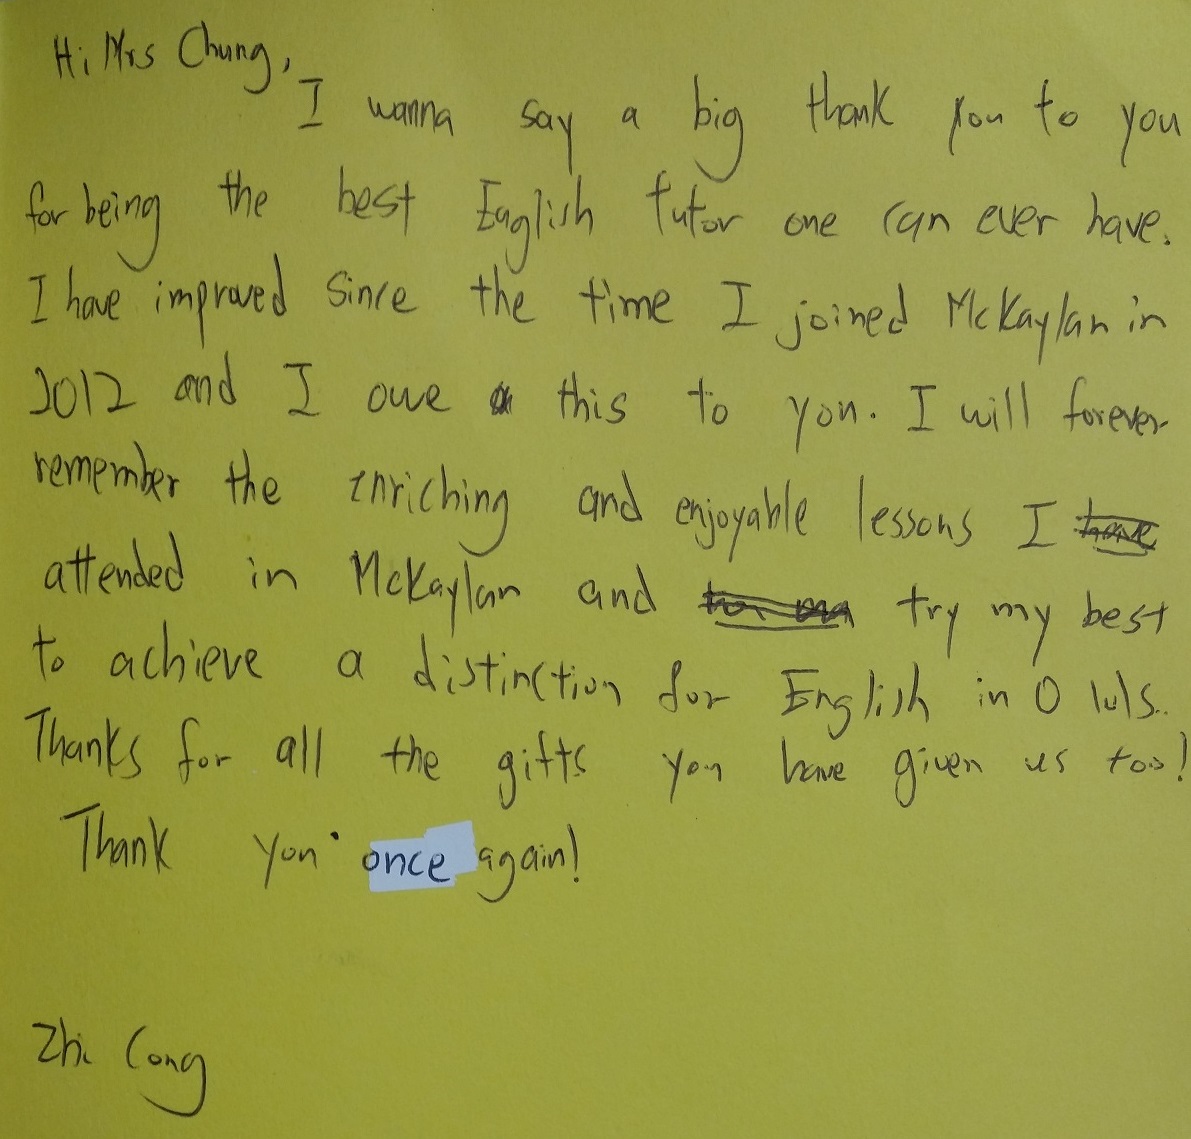 Hi Mrs Chung,
I wanna say a big thank you to you
for being the best English tutor one can ever have.
I have improved since the time I joined McKaylan in
2012 and I owe this to you. I will forever
remember the enriching and enjoyable lessons I have
attended in McKaylan and try my best
to achieve a distinction for English in O lvls..
Thanks for all the gifts you have given us too!
Thank you once again!
Zhi Cong